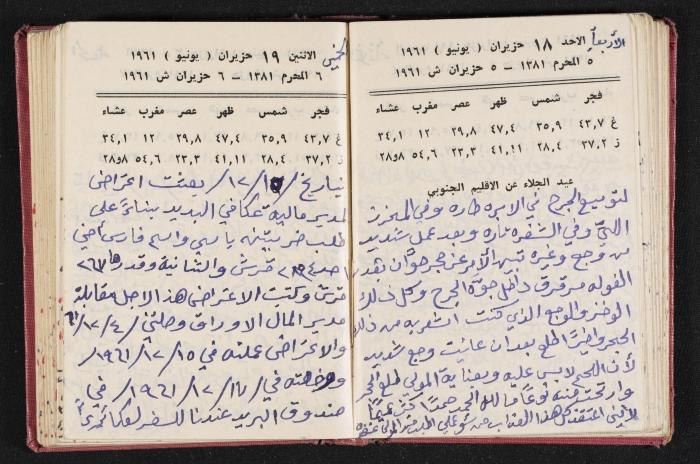 الأربعاء
الاحد ١٨ حزيران ( يونيو ) ١٩٦١
٥ المحرم ١٣٨١ – ٥ حزيران ش ١٩٦١
فجر شمس ظهر عصر مغرب عشاء
غ ٤٣,٧ ٣٥,٩ ٤٧,٤ ٢٩,٨ ١٢٠ ٣٤,١
ز ٣٧,٢ ٢٨,٤ ٤١,١١ ٢٣,٣ ٥٤,٦ ٢٨و٨
عيد الجلاء عن الاقليم الجنوبي
لتوسيع الجرح في الابره طاره وفي المخرز
وفي الشفره تاره وبعد عمل شديد
من وجع وغيره تبين الأمر عن حجر صوان بقد
الفوله مرقرق داخل جوّة الجرح وكل ذلك
الوخز والوجع الذي كنت اشعر به من ذلك
الحجر واخيرًا طلع بعد ان عانيت وجع شديد
لأن اللحم لابس عليه وبعناية المولى طلع الحجر
وارتحت منه نوعًا ما لله الحمد حمدًا كثيرًا
كل هذا العذاب من
الخميس
الاثنين ١٩ حزيران ( يونيو ) ١٩٦١
٦ المحرم ١٣٨١ – ٦ حزيران ش ١٩٦١
فجر شمس ظهر عصر مغرب عشاء
غ ٤٣,٧ ٣٥,٩ ٤٧,٤ ٢٩,٨ ١٢٠ ٣٤,١
ز ٣٧,٢ ٢٨,٤ ٤١,١١ ٢٣,٣ ٥٤,٦ ٢٨و٨
بتاريخ /١٢/ بعثت اعتراض
لمدير مالية عكا في البريد بناءً على
طلب ضريبتين باسمي واسم فارس اخي
قرش والثانية وقدرها ٢٦٧
قرش وكتبت الاعتراض هذا الاجل مقابلة
مدير المال الاوراق وصلتني /٤/١٢/٦١
والاعتراض عملته في ١٥/١٢/١٩٦١/
في /١٦/١٢/١٩٦١/ في
صندوق البريد عندنا للسفر لعكا